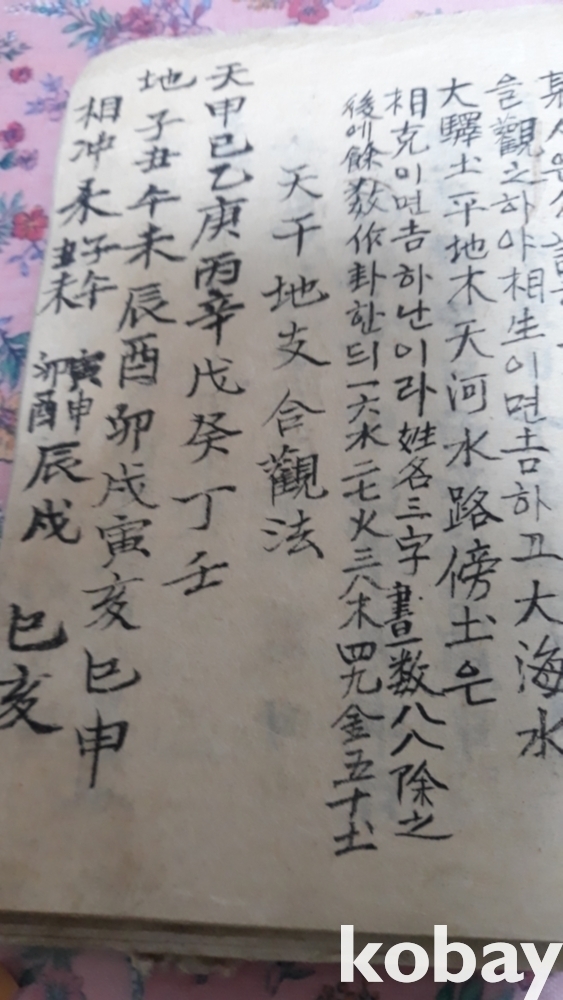 을觀之하야相生이면吉하고大海水
大驛土平地木天河水路傍土은
相克이면吉하난이라姓名三字書数八八除之
後에餘数作卦한듸一六水二七火三八木四九金五十土
天干地支合觀法
天甲己乙庚丙辛戊癸丁壬
地子丑午未辰酉卯戌寅亥巳申
相冲 子午丑未寅申卯酉辰戌巳亥
kobay